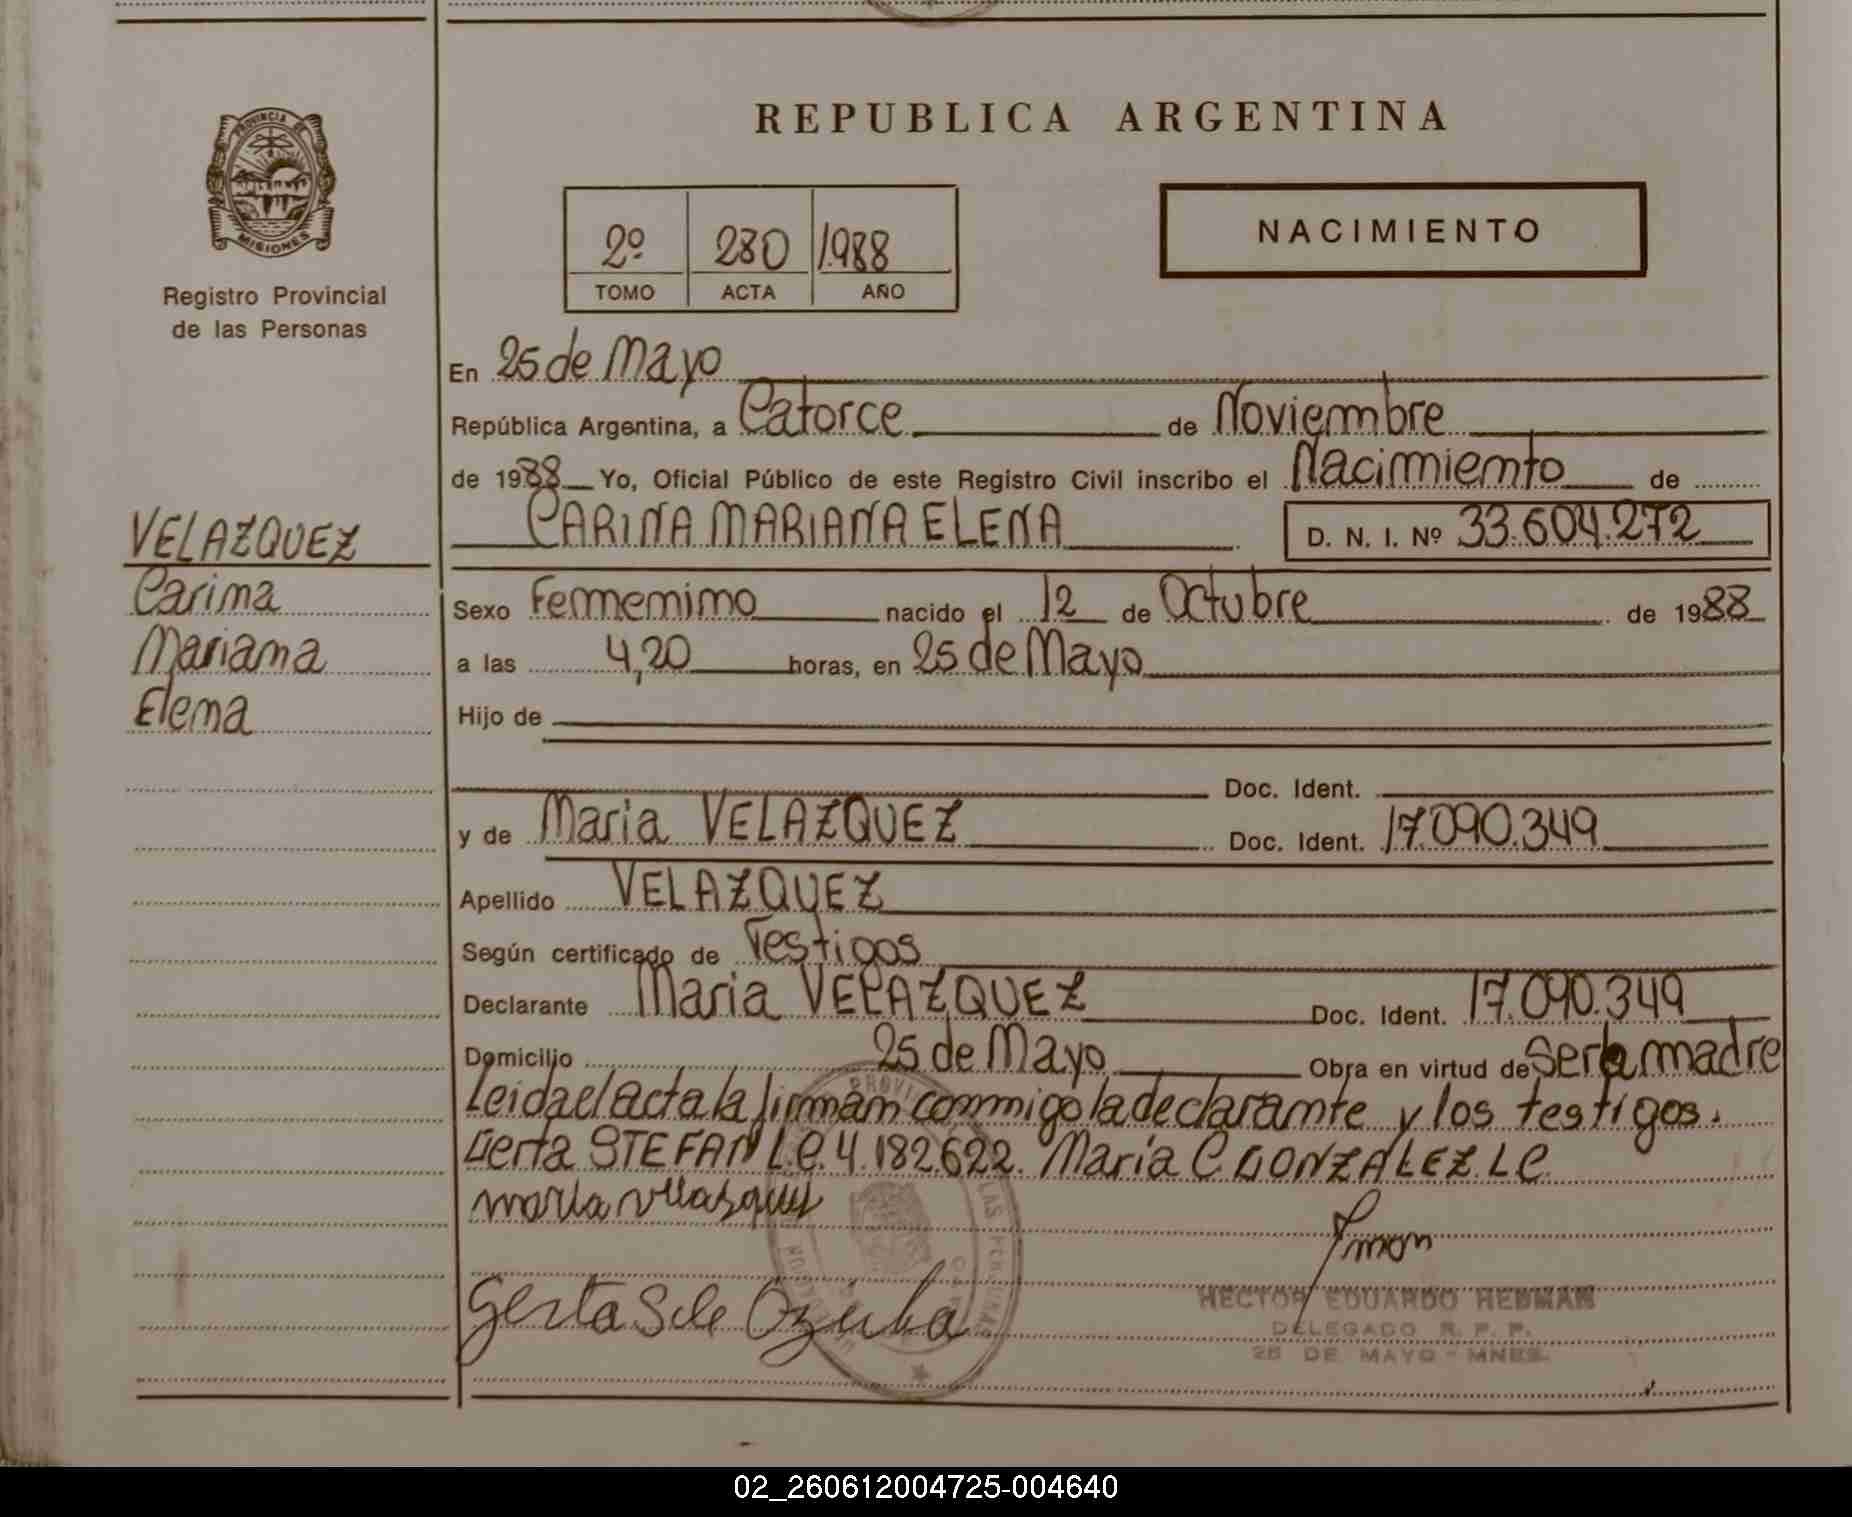 REPUBLICA ARGENTINA
PROVINCIA DE
MISIONES
Registro Provincial
de las Personas
2º 280 1988
TOMO ACTA AÑO
NACIMIENTO
En 25 de Mayo
República Argentina, a Catorce de Noviembre
de 1988 Yo, Oficial Público de este Registro Civil inscribo el Nacimiento de
CARINA MARIANA ELENA D. N. I. Nº 33.604.272
VELAZQUEZ
Carina
Mariana
Elena
Sexo Femenino nacido el 12 de Octubre de 1988
a las 4,20 horas, en 25 de Mayo
Hijo de
Doc. Ident.
y de Maria VELAZQUEZ Doc. Ident. 17.090.349
Apellido VELAZQUEZ
Según certificado de Testigos
Declarante Maria VELAZQUEZ Doc. Ident. 17.090.349
Domicilio 25 de Mayo Obra en virtud de ser la madre
Leida el acta la firman conmigo la declarante y los testigos.
Gerta STEFAN L.C. 4.182.622. María C GONZALEZ LC
Maria Velasquez
Gerta S de
HECTOR EDUARDO HEDMAN
DELEGADO R. P. P.
25 DE MAYO - MNES.
02_260612004725-004640